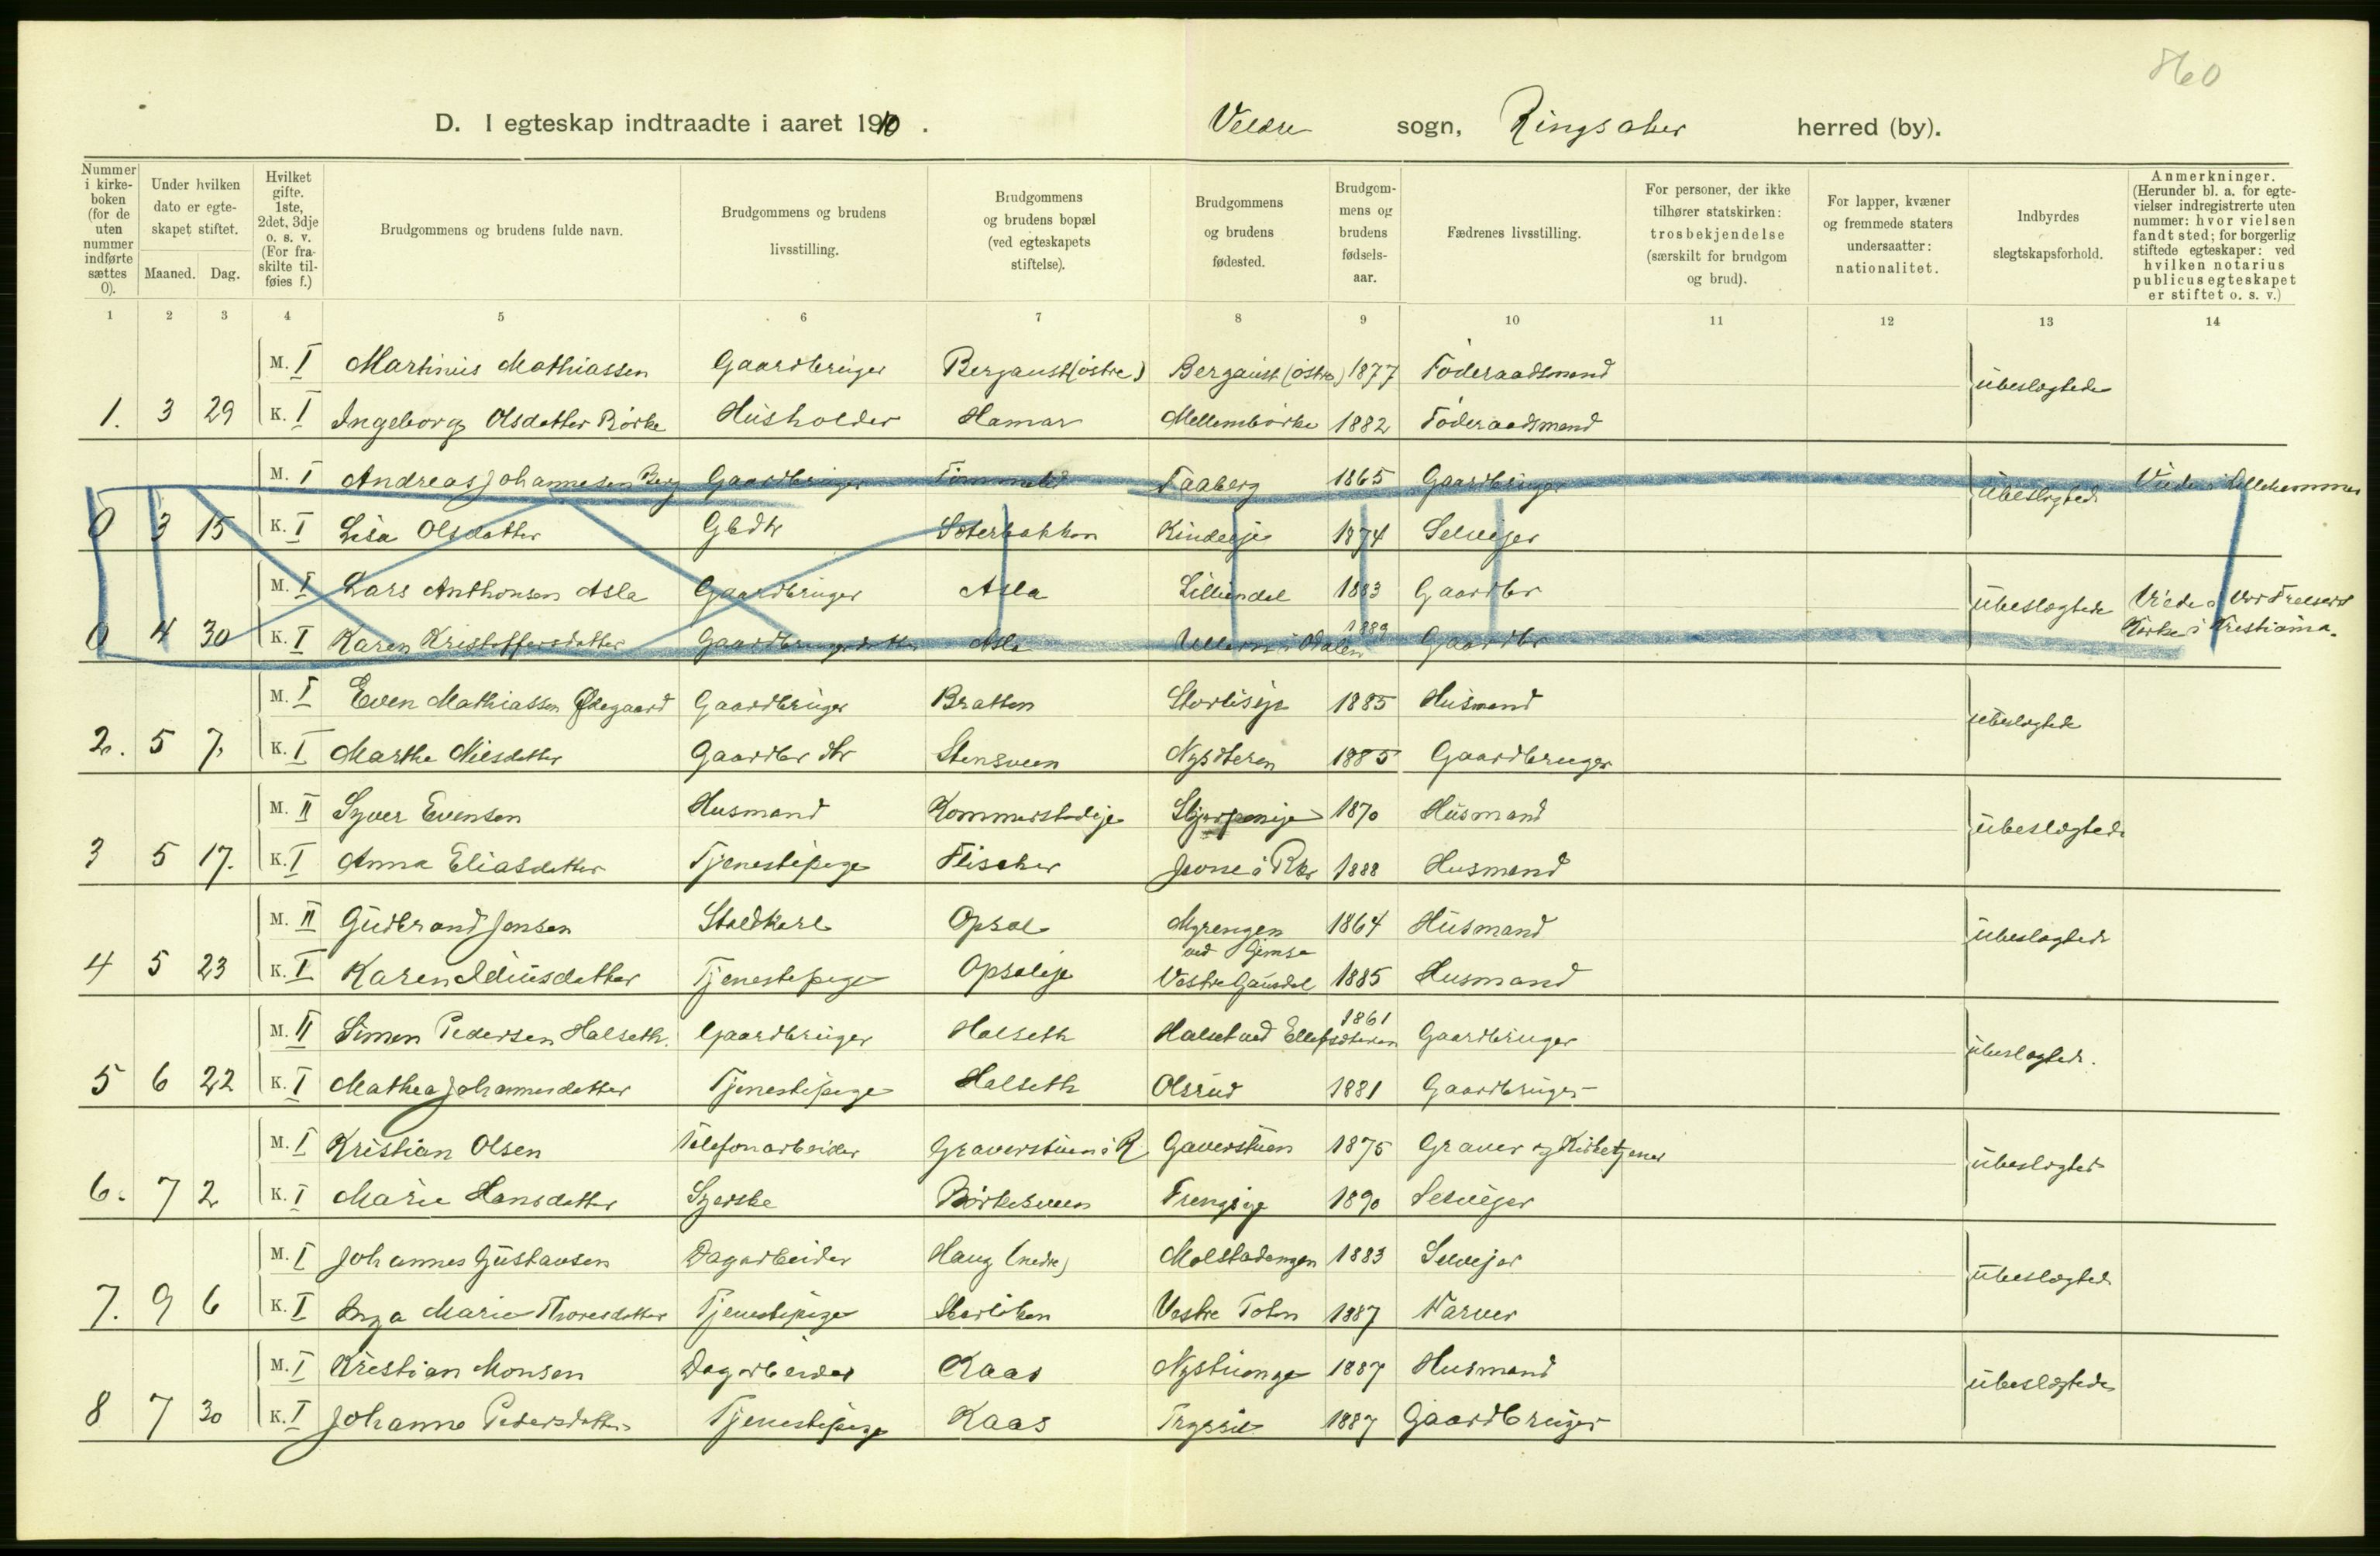 860
D. I egteskap indtraadte i aaret 1910. Veldre sogn, Ringsaker herred (by).
Nummer i kirkeboken (for de uten nummer indførte sættes 0).
Under hvilken dato er egteskapet stiftet.
Maaned. Dag.
Hvilket gifte. 1ste, 2det, 3dje o. s. v. (For fraskilte tilføies f.)
Brudgommens og brudens fulde navn.
Brudgommens og brudens livsstilling.
Brudgommens og brudens bopæl (ved egteskapets stiftelse).
Brudgommens og brudens fødested.
Brudgommens og brudens fødselsaar.
Fædrenes livsstilling.
For personer, der ikke tilhører statskirken: trosbekjendelse (særskilt for brudgom og brud).
For lapper, kvæner og fremmede staters undersaatter: nationalitet.
Indbyrdes slegtskapsforhold.
Anmerkninger. (Herunder bl. a. for egtevielser indregistrerte uten nummer: hvor vielsen fandt sted; for borgerlig stiftede egteskaper: ved hvilken notarius publicus egteskapet er stiftet o. s. v.)
1 2 3 4 5 6 7 8 9 10 11 12 13 14
M. I Martinius Mathiassen Gaardbruger Bergaust (östre) Bergaust (östre) 1877 Föderaadsmand ubeslægtede
1. 3 29 K. I Ingeborg Olsdatter Börke Husholder Hamar Mellembörke 1882 Föderaadsmand
M. I Andreas Johannesen Berg Gaardbruger Faaberg 1865 Gaardbruger ubeslægtede Viede i Lillehammer
0 3 15 K. I Lisa Olsdatter Gbdtr Sæterbakken Kindseje 1874 Selveijer
M. I Lars Anthonsen Asla Gaardbruger Asla Lilliendal 1883 Gaardbr ubeslægtede Viede i Vor Frelsers
0 4 30 K. I Karen Kristoffersdatter Gaardbrugerdatter Asla Ullern i Odalen 1889 Gaardbr Kirke i Kristiania.
M. I Even Mathiassen Ødegaard Gaardbruger Bratten Storliseje 1885 Husmand ubeslægtede
2. 5 7. K. I Marthe Nilsdatter Gaardbr dtr Stensveen Nysæteren 1885 Gaardbruger
M. II Syver Evensen Husmand Kommerstadeje 1870 Husmand ubeslægtede
3 5 17. K. I Anna Eliasdatter Tjenestepige Flisaker Jeone i Rker 1888 Husmand
M. II Gudbrand Jensen Staldkarl Opsal Myrengen ved Stjemsa 1864 Husmand ubeslægtede
4 5 23 K. I Karen Idiusdatter Tjenestepige Opsaleje Vestre Gausdal 1885 Husmand
M. II Simen Pedersen Halseth. Gaardbruger Halseth Halset ved Ellefsæteren 1861 Gaardbruger ubeslægtede.
5 6 22 K. I Mathea Johannesdatter Tjenestepige Halseth Olsrud 1881 Gaardbruger
M. I Kristian Olsen Telefonarbeider Graverstuen i R Gaverstuen 1875 Graver og Kirketjener ubeslægtede
6. 7 2 K. I Marie Hansdatter Syerske Börkesveen Frengseje 1890 Selveijer
M. I Johannes Gustavsen Dagarbeider Haug (nedre) Molstadengen 1883 Selveijer ubeslægtede
7. 9 6 K. I Inga Marie Thoresdatter Tjenestepige Skarliken Vestre Toten 1887 Farver
M. I Kristian Monsen Dagarbeider Kaas Nystuenge 1887 Husmand ubeslægtede
8 7 30 K. I Johanne Pedersdatter Tjenestepige Kaas Trysil 1887 Gaardbruger